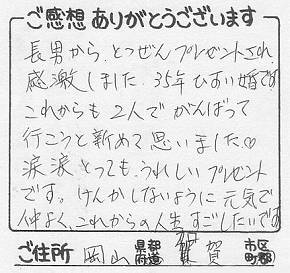 ご感想ありがとうございます
長男から、とつぜんプレゼントされ
感激しました。35年ひすい婚です
これからも2人でがんばって
行こうと新めて思いました♡
涙涙とっても、うれしいプレゼント
です。けんかしないように元気で
仲よく、これからの人生すごしたいです
ご住所 岡山 都道府県 賀 市区町郡